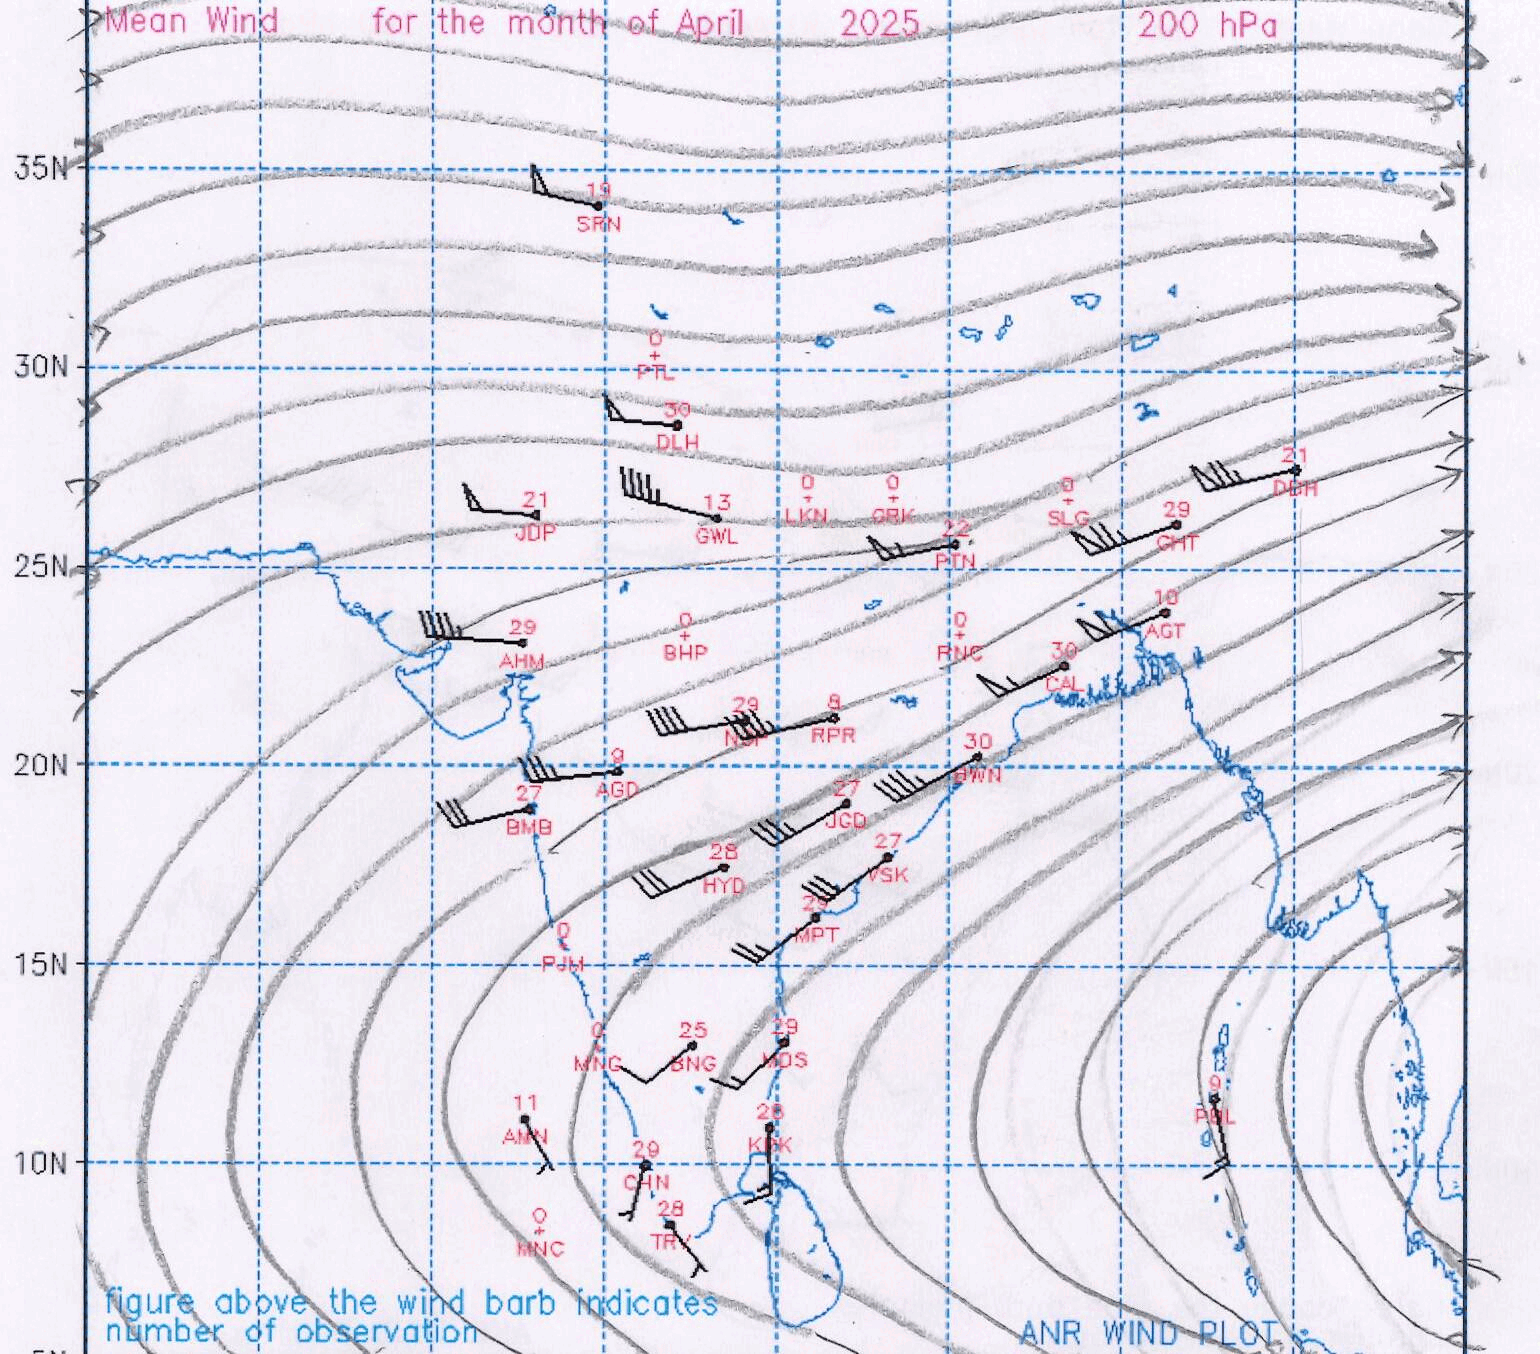 Mean Wind for the month of April 2025 200 hPa
35N
19
SRN
30N
0
PTL
30
DLH
21
JDP
13
GWL
0
LKN
0
GRK
22
PTN
0
SLG
29
GHT
21
DBH
25N
29
AHM
0
BHP
0
RNC
30
CAL
10
AGT
29
NGP
8
RPR
20N
9
AGD
27
BMB
30
BWN
27
JGD
28
HYD
27
VSK
29
MPT
0
PJM
15N
0
MNG
25
BNG
29
MDS
11
AMN
28
KRK
9
PBL
10N
29
CHN
28
TRV
0
MNC
figure above the wind barb indicates
number of observation
ANR WIND PLOT
5N